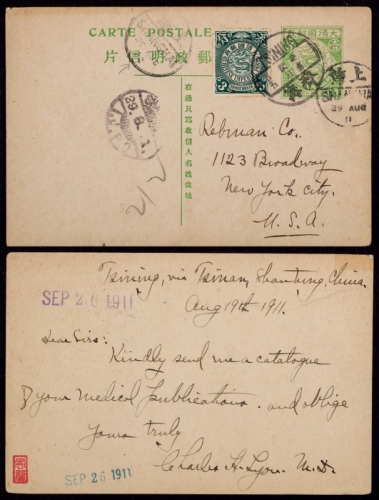 CARTE POSTALE
大清國郵政
片信明政郵
右邊只寫收信人名姓住址
3
SHANGHAI
29.8.11
上海
SHANGHAI
29 AUG
11
Rebman Co.,
1123 Broadway
New York City.
U. S. A.
2/2
Tsining, via Tsinan, Shantung, China.
SEP 26 1911
Aug 19th 1911.
Dear Sirs:
Kindly send me a catalogue
of your Medical Publications. and oblige
Yours truly
Charles H. Lyon. M.D.
SEP 26 1911